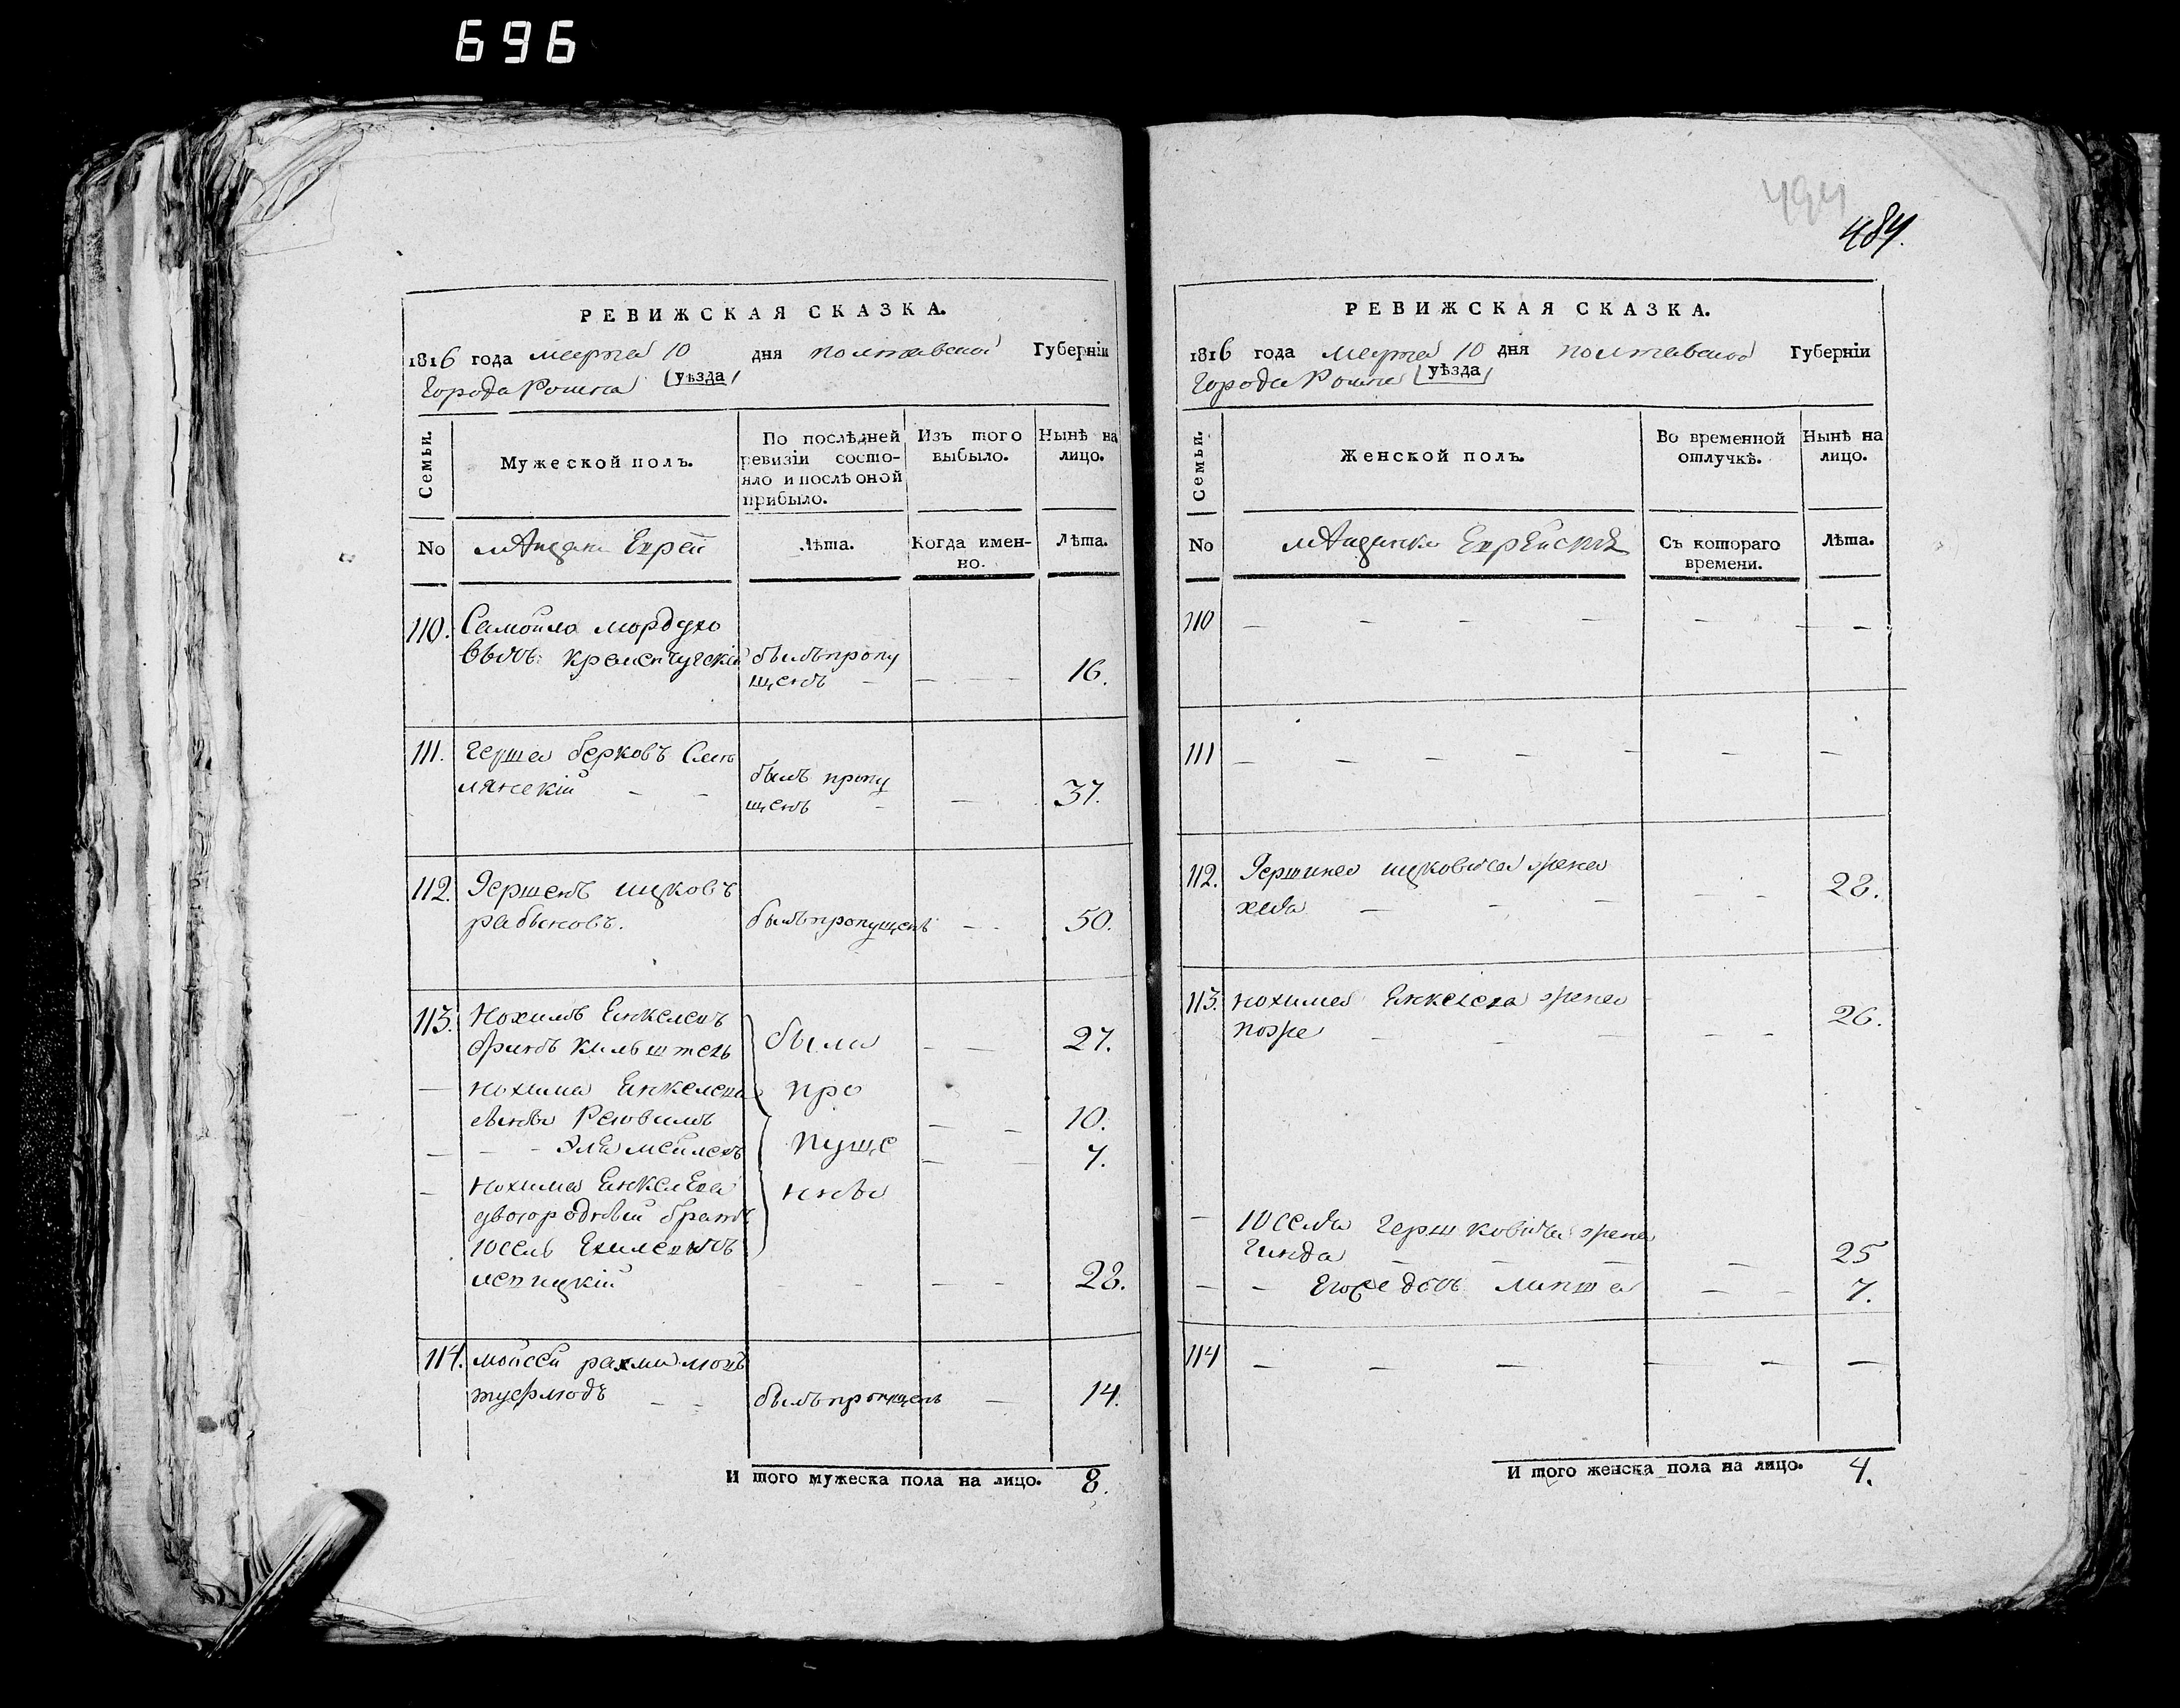 696
494
484.
РЕВИЖСКАЯ СКАЗКА.
1816 года марта 10 дня полтавской Губерніи
Города Ромна (уѣзда)
Семьи.
Мужеской полъ.
По послѣдней ревизіи состо-
яло и послѣ оной
прибыло.
Изъ того
выбыло.
Нынѣ на
лицо.
No
мѣщане Евреи
Лѣта.
Когда имен-
но.
Лѣта.
110. Самойло мордухо
вичъ кременчугскій былъ пропу
щенъ 16.
111. герша берковъ Смѣ
лянскій былъ пропу
щенъ 37.
112. Гершенъ ицковъ
рабиновъ. былъ пропущенъ 50.
113. Нохимъ Енкелевъ
27.
нохима Енкелева
10.
7.
были
про
пуще
нны
нохима Енкелева
двоюродный братъ
28.
114. мойсей
былъ пропущенъ 14.
И того мужеска пола на лицо. 8.
РЕВИЖСКАЯ СКАЗКА.
1816 года марта 10 дня полтавской Губерніи
Города Ромна (уѣзда)
Семьи.
Женской полъ.
Во временной
отлучкѣ.
Нынѣ на
лицо.
No
мѣщанки Еврейскіе
Съ котораго
времени.
Лѣта.
110
111
112. Гершина ицковича жена
28.
113. нохима Енкелева жена
26.
Госеля гершковича жена
гинда 25
7.
114
И того женска пола на лицо. 4.